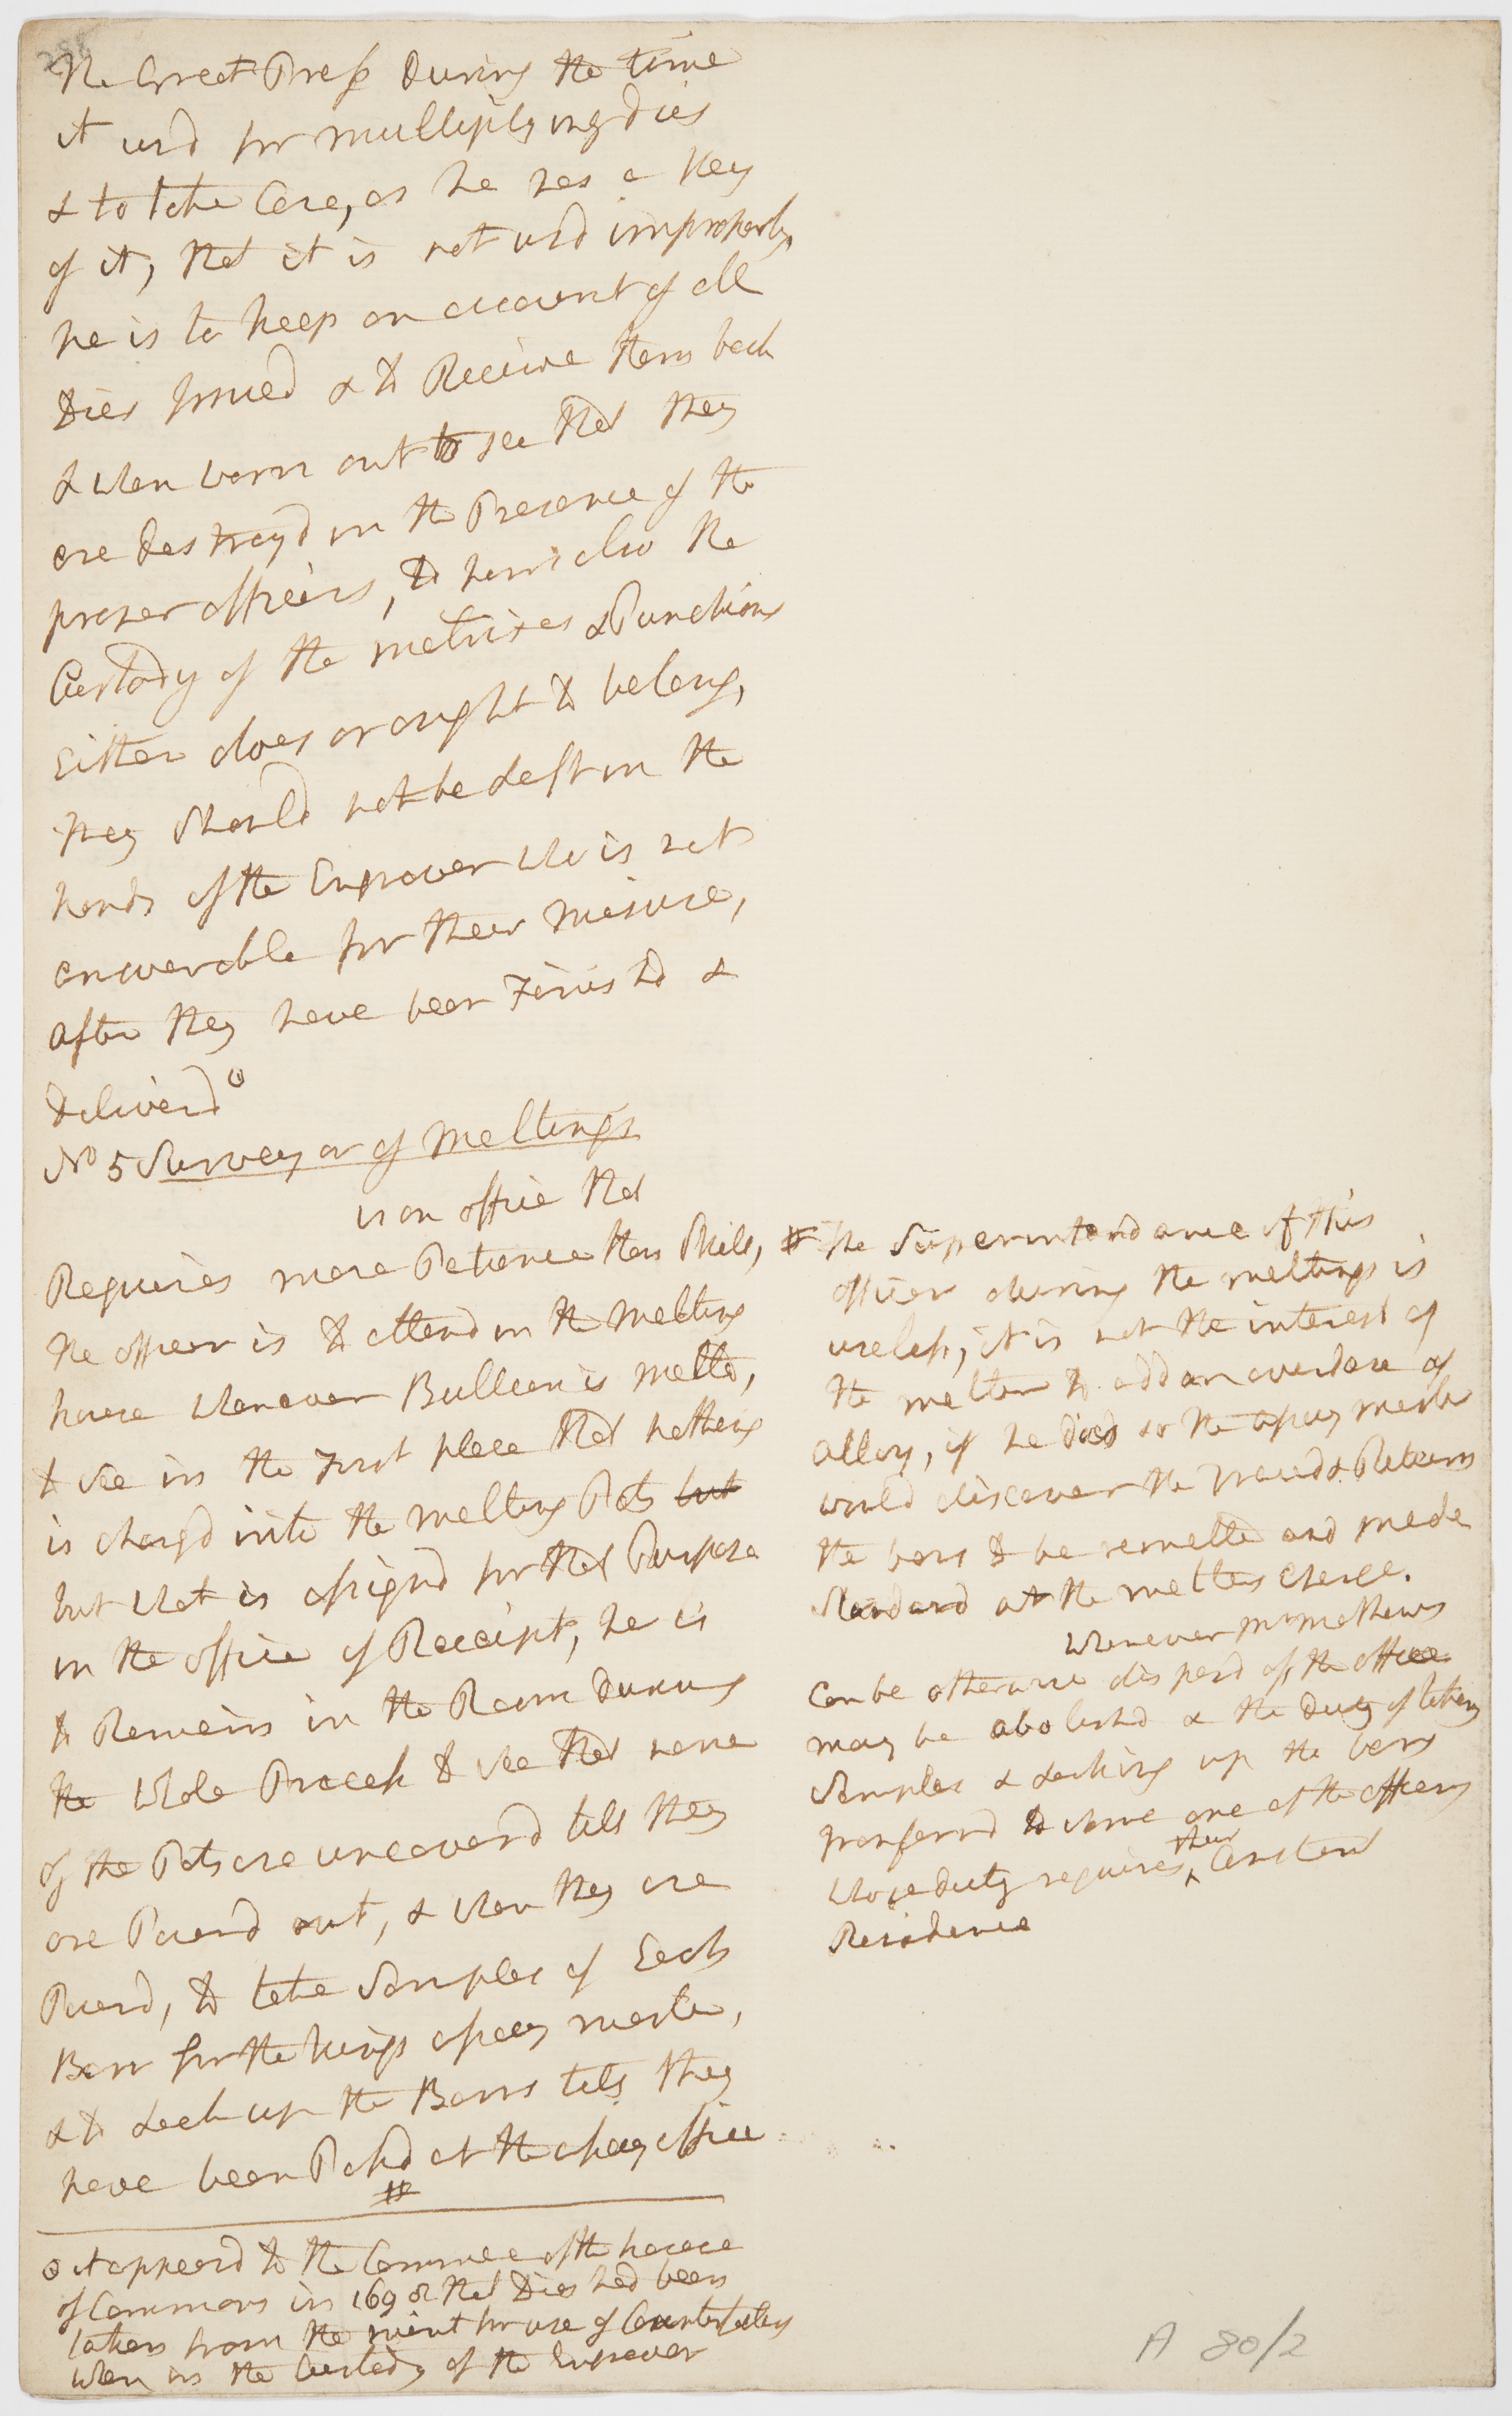 The Great Press During the time
it usd for multiplying dies
& to take Care, as he has a Key
of it, that it is not usd improperly,
he is to keep an account of all
Dies Issued & to Receive them back
& when worn out to see that they
are destroyd in the Presence of the
proper officers, to him also the
Custody of the matrixes & Punchions
Either does or ought to belong,
they Should not be Left in the
hands of the Engraver who is not
answerable for their misuse,
after they have been Finishd &
deliverd ⊙
No 5 Surveyor of meltings
is an office that
Requires more Patience than Skill,
the officer is to attend in the melting
house whenever Bullion is melted,
to see in the First place that nothing
is chargd into the melting Pots but
but what is assignd for that Purpose
in the office of Receipt, he is
to Remain in the Room during
the whole Process to see that none
of the Pots are uncoverd till they
are Pourd out, & when they are
Pourd, to take Samples of Each
Barr for the kings assay master,
& to Lock up the Barrs till they
have been Passd at the assay office
#
⊙ it appeard to the Commee of the house
of Commons in 1698 that Dies had been
taken from the mint for use of Counterfeiters
when in the Custody of the Engraver
# The Superintendance of this
officer during the meltings is
useless, it is not the interest of
the melter to add an overdose of
alloy, if he does so the assay master
would discover the Fraud & Return
the bars to be remelted and made
Standard at the melters charge.
Whenever Mr mathews
can be otherwise disposd of the office
may be abolishd & the duty of taking
Samples & Locking up the bars
transferrd to some one of the officers
whose duty requires their Constant
Residence
A 80/2